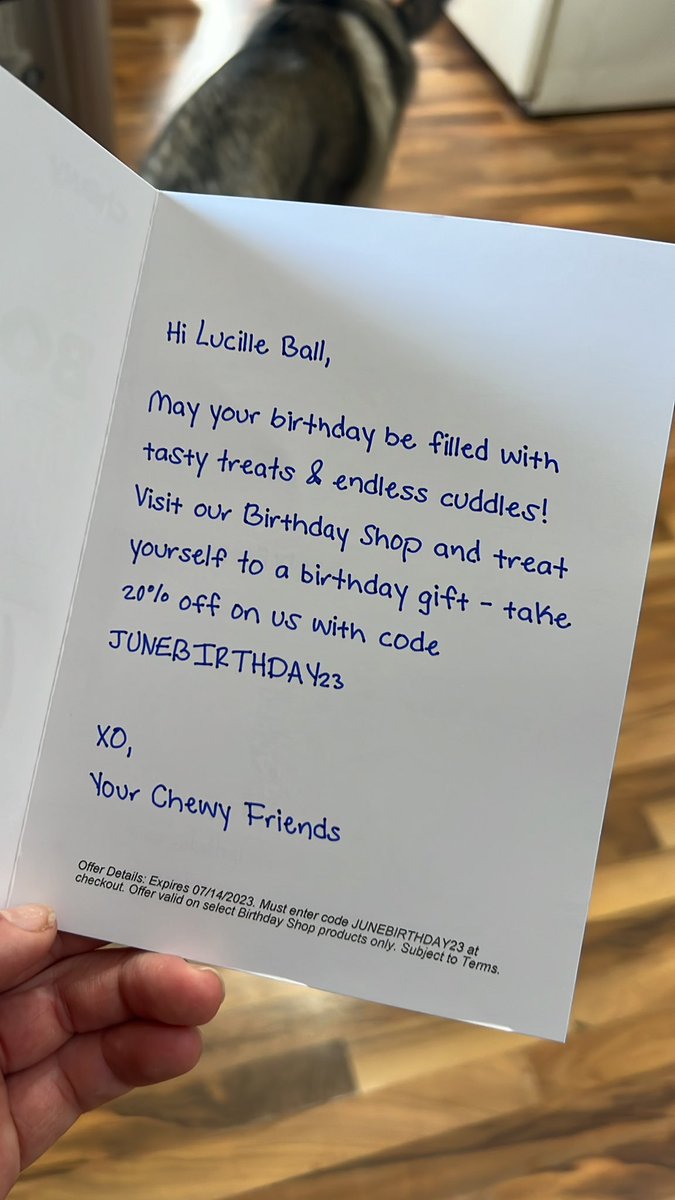 Hi Lucille Ball,
May your birthday be filled with
tasty treats & endless cuddles!
Visit our Birthday Shop and treat
yourself to a birthday gift - take
20% off on us with code
JUNEBIRTHDAY23
XO,
Your Chewy Friends
Offer Details: Expires 07/14/2023. Must enter code JUNEBIRTHDAY23 at
checkout. Offer valid on select Birthday Shop products only. Subject to Terms.